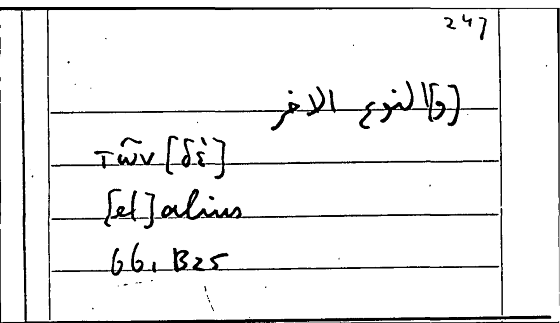 247
[و]النوع الاخر
τῶν [δὲ]
[et] alius
66, B25